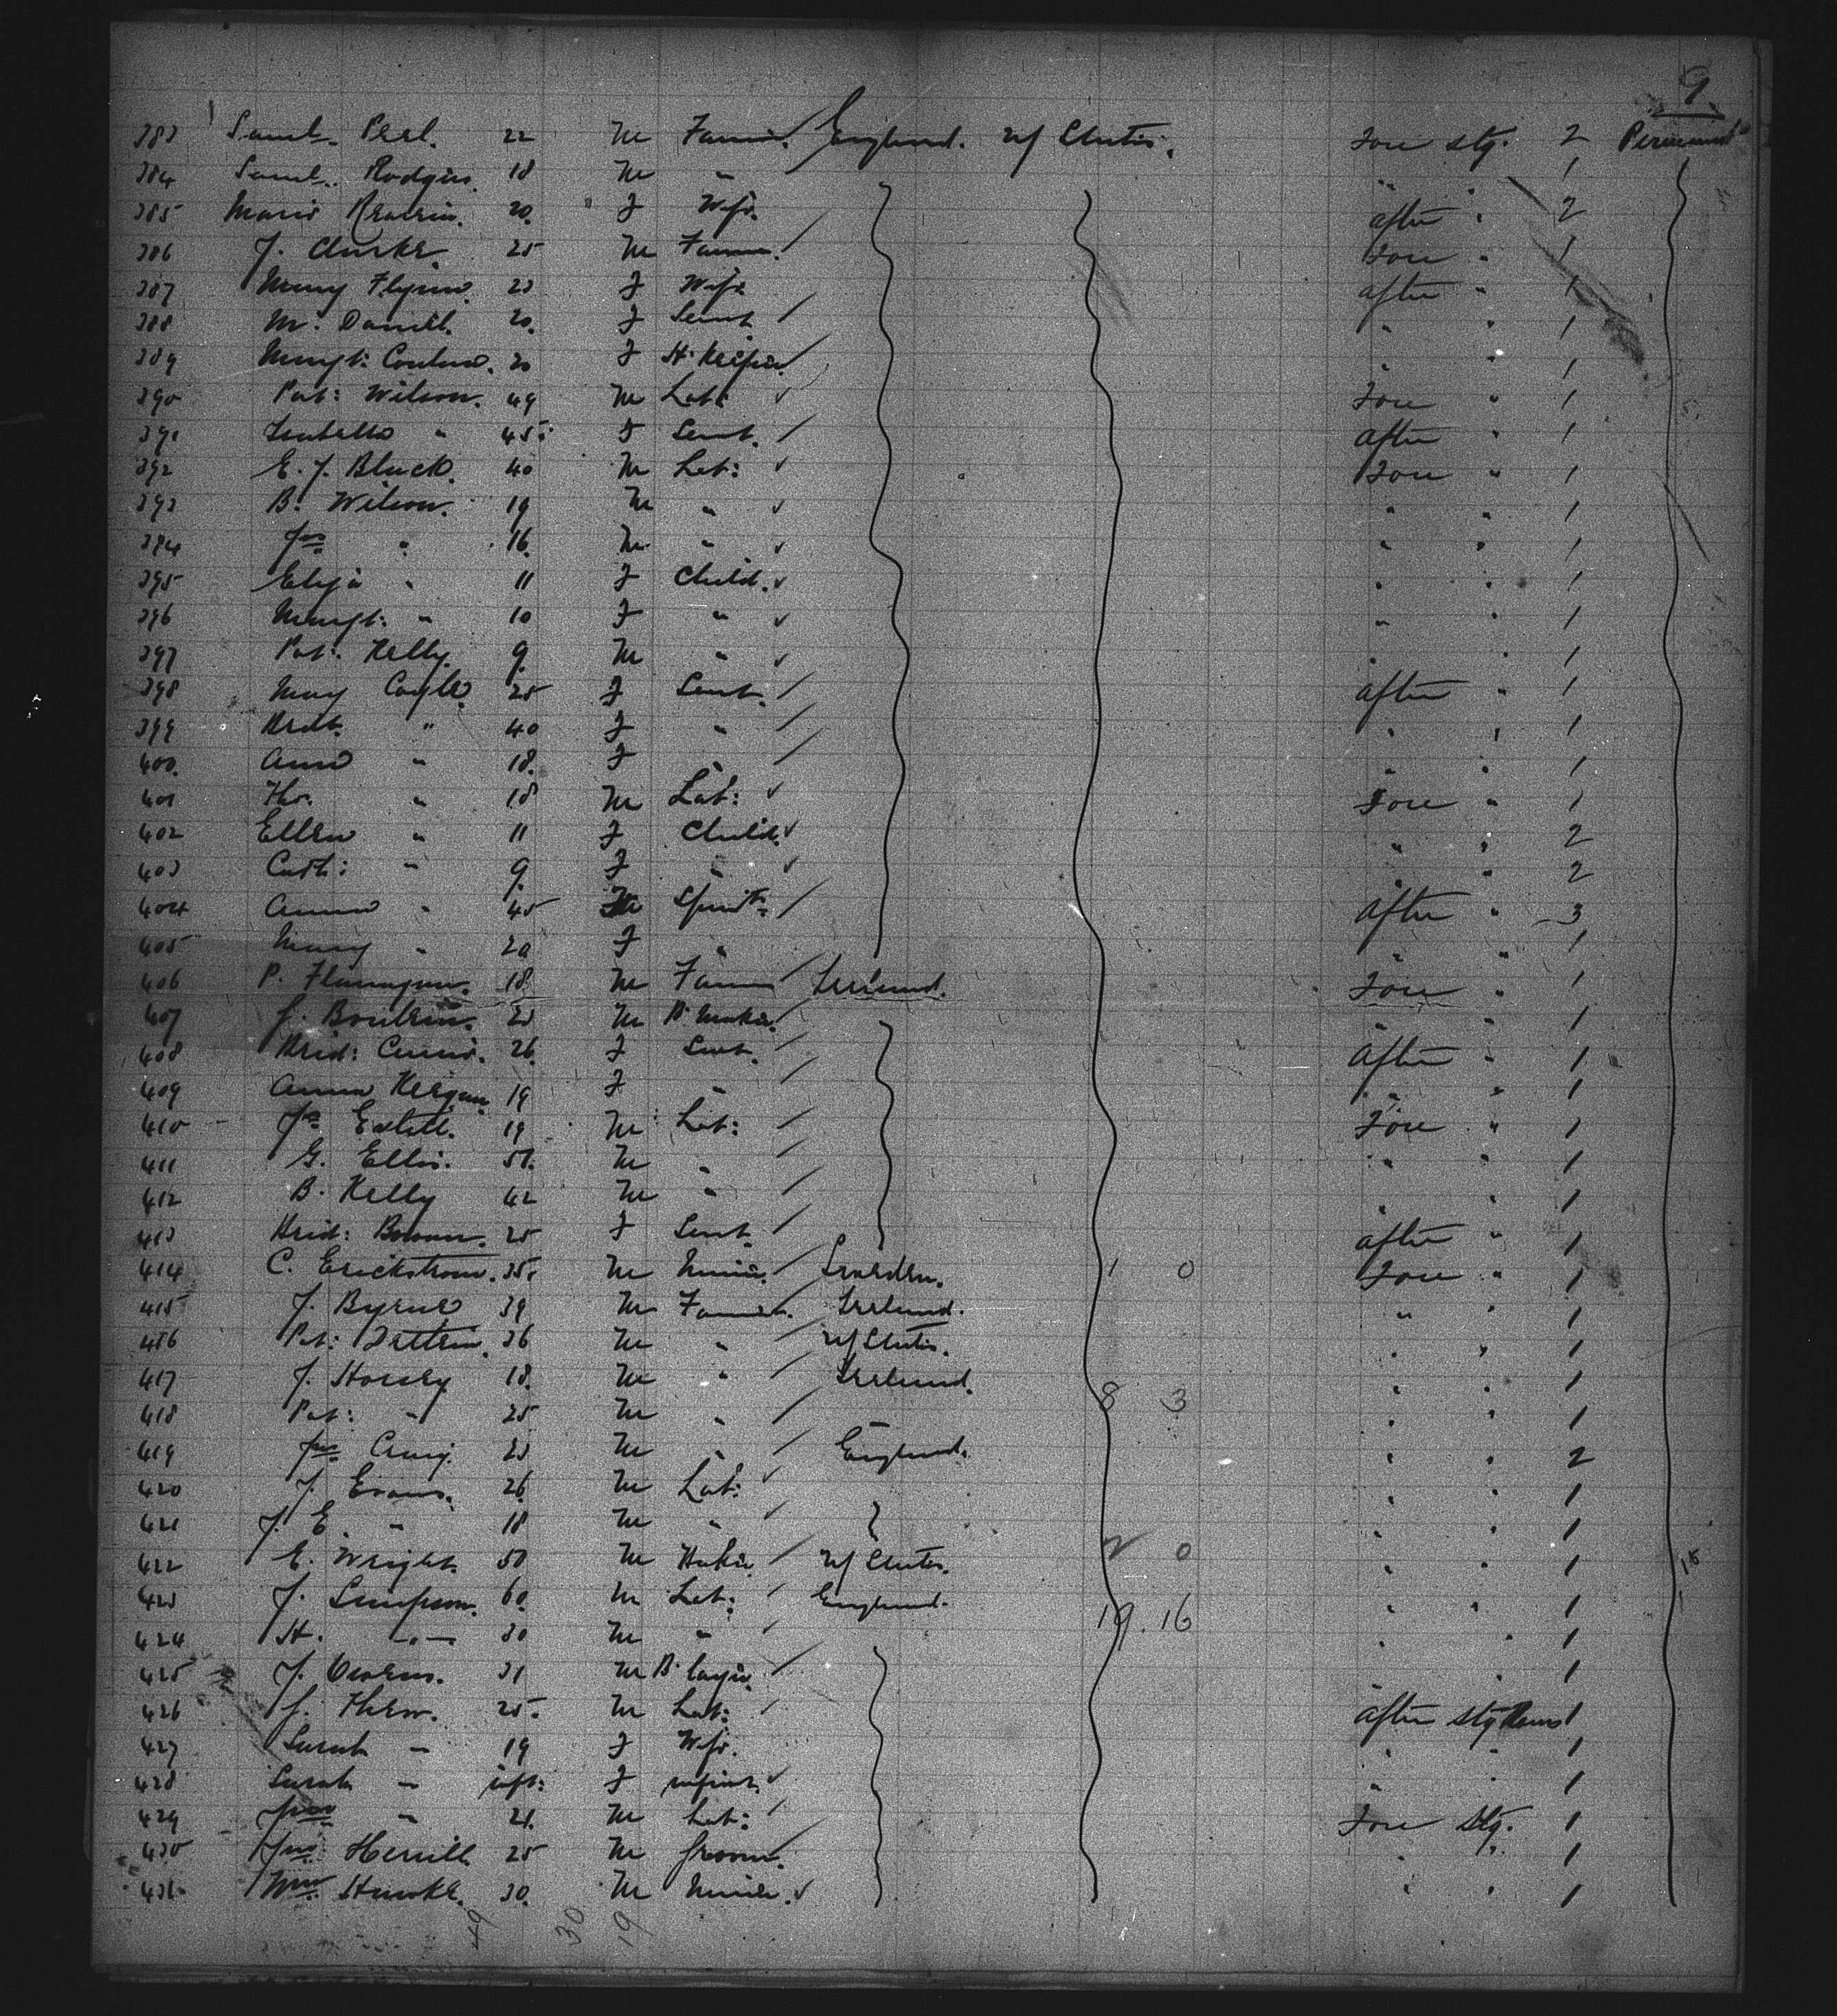 9.
383 Saml. Peel. 22 M Farmer. England. U/States. Fore Stg. 2 Permanent
384 Saml. Rodgers. 18 M " " " 1
385 20. F Wife. After " 2
386 J. Clarke. 25 M Farmer. Fore " 1
387 Mary Flynn. 23 F Wife After " 1
388 M. Daniel. 20. F Servt. " " 1
389 Margt: 20 F H. Keeper " 1
390 Pat: Wilson. 49 M Lab: Fore " 1
391 Isabella " 45. F Servt. After " 1
392 E. J. Black. 40 M Lab: Fore " 1
393 B. Wilson. 19 M " " " 1
394 Jno " 16. M " " " 1
395 Eliza " 11 F Child. " " 1
396 Margt: " 10 F " " " 1
397 Pat. Kelly. 9. M " " " 1
398 Mary Coyle. 25 F Servt. After " 1
399 " 40 F " " " 1
400. Ann " 18. F " " " 1
401 Tho. " 18 M Lab: Fore " 1
402 Ellen " 11 F Child. " " 2
403 Cath: " 9. F " " " 2
404 Anna " 45 Spinstr. After " 3
405 Mary " 20 F " " " 1
406 P. Flannagan. 18. M Farmer Ireland. Fore " 1
407 23 M B. Maker. " " 1
408 Brid: 26. F Servt. After " 1
409 Anna Keegan 19 F " " " 1
410 Jno 19 M Lab: Fore " 1
411 G. Ellis. 51. M " " " 1
412 B. Kelly 42 M " " " 1
413 Brid: 25 F Servt. After " 1
414 C. Erickstrom. 35. M Miner. Sweden. 1 0 Fore " 1
415 J. Byrne 39 M Farmer. Ireland. " " 1
416 Pat: 36 M " U/States. " " 1
417 J. Horsey 18. M " Ireland. 8 3 " " 1
418 Pat: " 25 M " " " " 1
419 Jno Craig. 23 M " England. " " 2
420 J. Evans. 26 M Lab: " " 1
421 J. E. " 18 M " " " 1
422 E. Wright. 50 M U/States. 2 0 " " 1
423 J. Simpson. 60. M Lab: England. 19. 16 " " 1
424 H. " 30 M " " " 1
425 J. Owens. 31 M B. layer. " 1
426 25. M Lab: After Stg Rms 1
427 Sarah " 19 F Wife. " " 1
428 Sarah " inft: F infant. " " 1
429 Jno " 21. M Lab: Fore Stg. 1
430 Jno 25 M Groom. " " 1
431 Wm 30. M Miner. " " 1
49 30 19